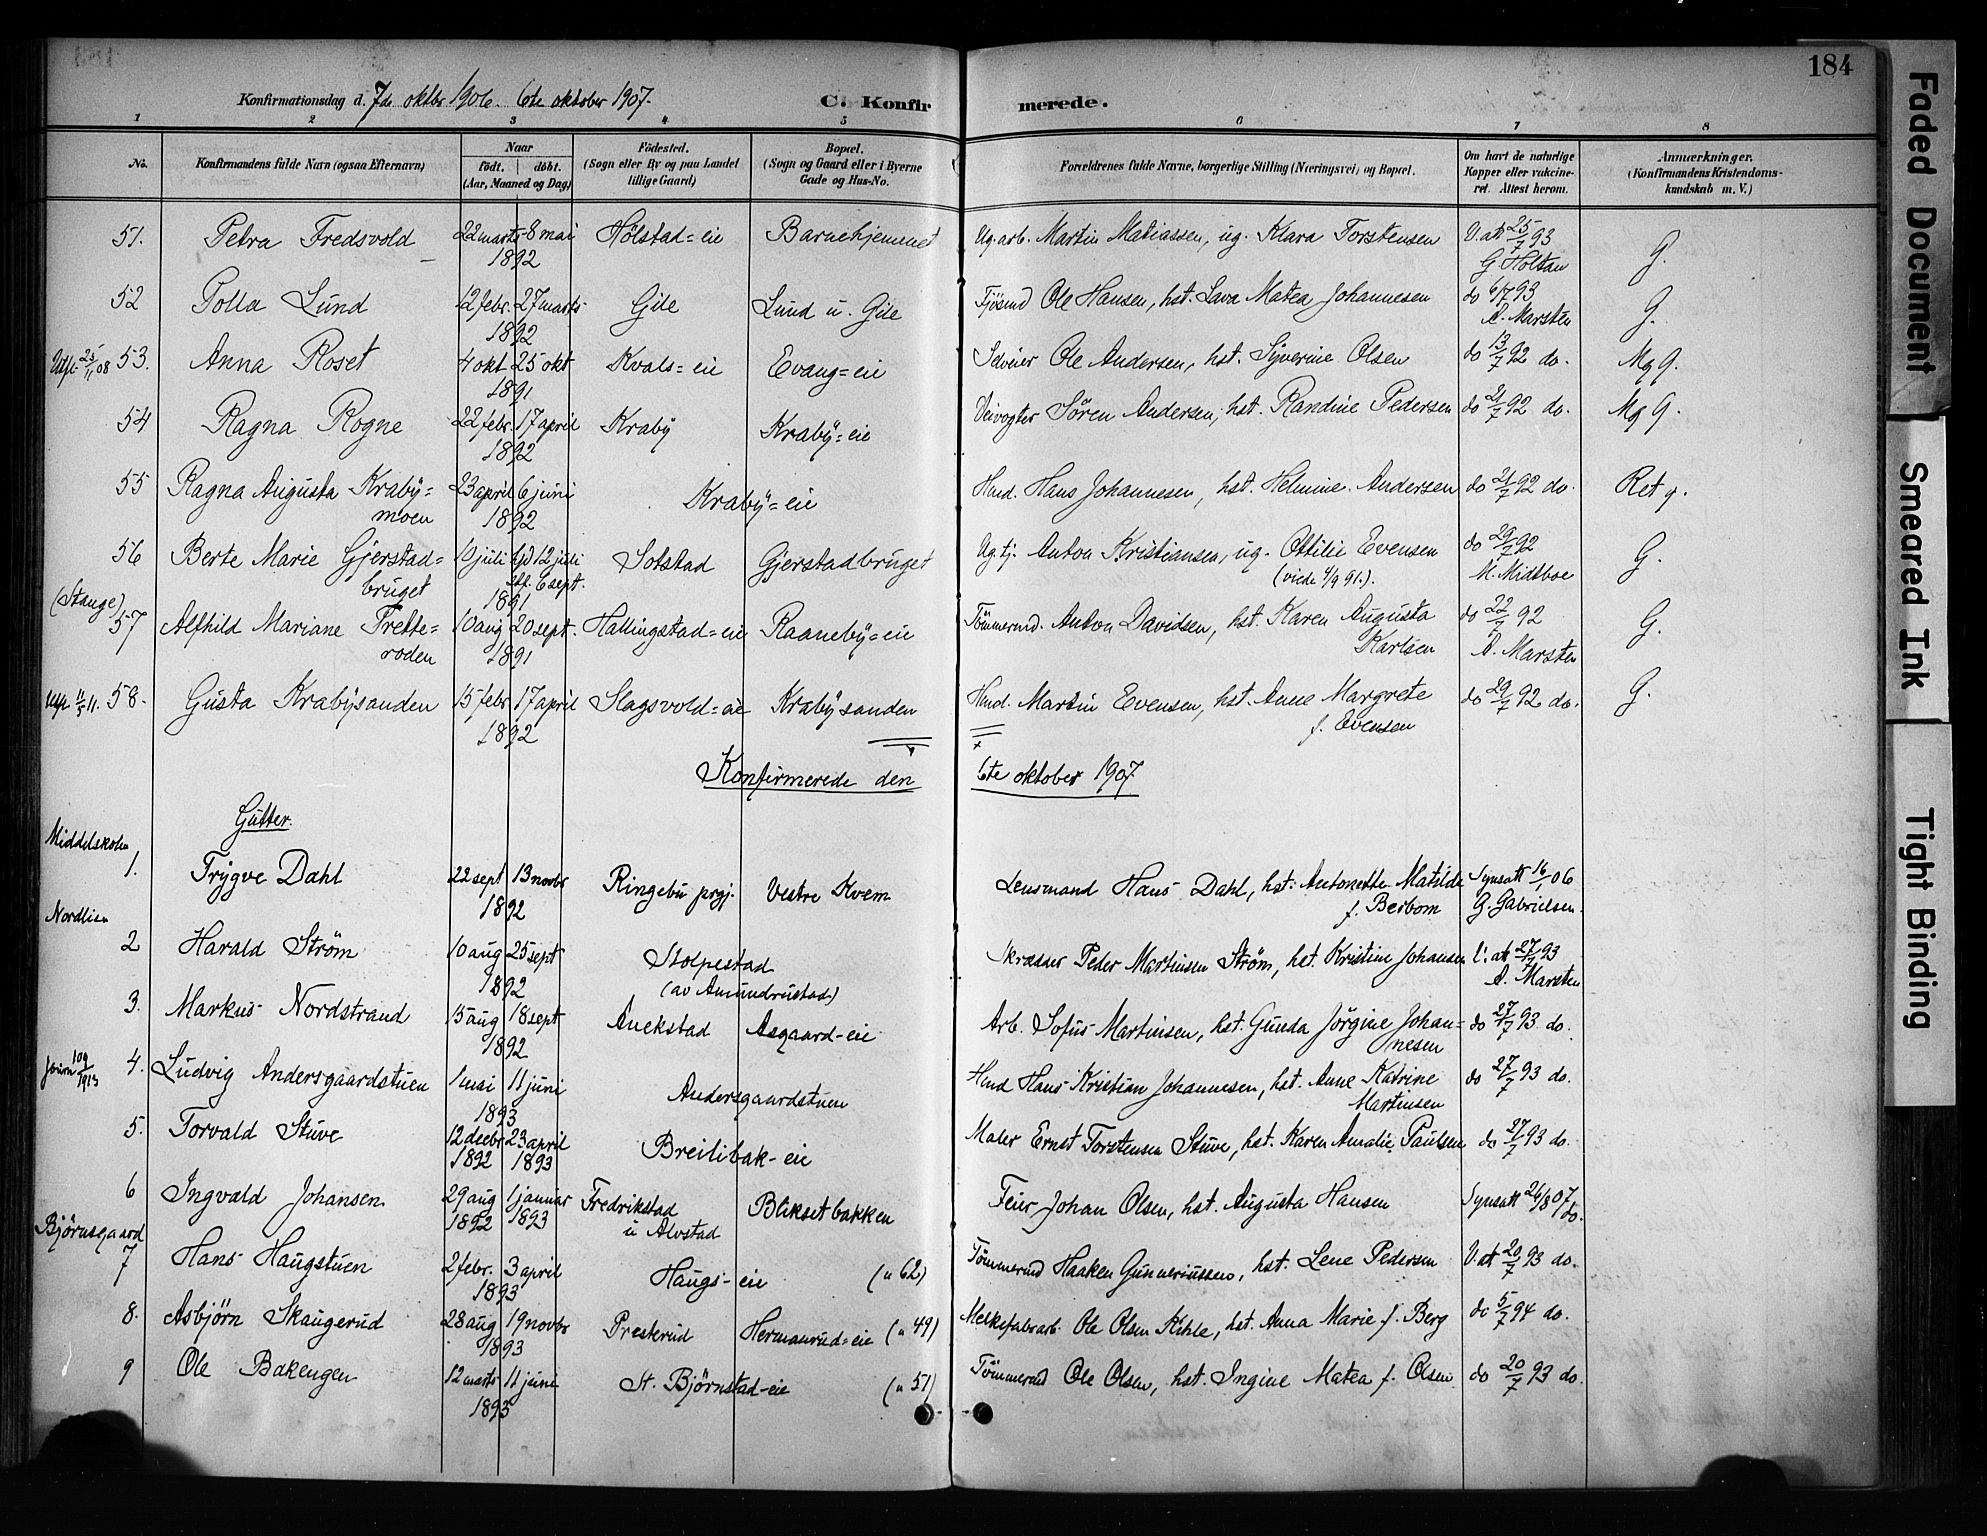 184
Konfirmationsdag d. 7de oktbr 1906. 6te oktober 1907.
C. Konfirmerede.
1 2 3 4 5 6 7 8
No.
Konfirmandens fulde Navn (ogsaa Efternavn)
Naar
født. døbt.
(Aar, Maaned og Dag)
Fødested.
(Sogn eller By og paa Landet
tillige Gaard)
Bopæl.
(Sogn og Gaard eller i Byerne
Gade og Hus-No.
Forældrenes fulde Navne, borgerlige Stilling (Næringsvei) og Bopæl.
Om havt de naturlige
Kopper eller vakcine-
ret. Attest herom.
Anmærkninger.
(Konfirmandens Kristendoms-
kundskab m. V.)
51. Petra Fredsvold 22 marts 8 mai Hølstad=eie Barnehjemmet Ug. arb. Martin Matiassen, ug. Klara Torstensen V. at 25/7 93 G.
1892 G Holtan
52 Polla Lund 12 febr. 27 marts Gile Lund u. Gile Fjøsmd Ole Hansen, hst. Lava Matea Johannesen do 6/7 93 G.
1892 A. Marsten
Udfl. 25/11 08 53. Anna Roset 4 okt 25 okt Kvals=eie Evang=eie Selveier Ole Andersen, hst. Syverine Olsen do 13/7 92 do. Mg G.
1891
54 Ragna Rogne 22 febr. 17 april Kraby Kraby=eie Veivogter Søren Andersen, hst. Randine Pedersen do 21/7 92 do. Mg G.
1892
55 Ragna Augusta Kraby= 23 april 6 juni Kraby=eie Hmd. Hans Johannesen, hst. Helmine Andersen do 21/7 92 do. Ret g.
moen 1892
56 Berte Marie Gjerstad= 10 juli hjd 12 juli Sotstad Gjerstadbruget Ug. tj. Anton Kristiansen, ug. Ottilie Evensen do 29/7 92 G.
bruget stf. 6 sept. (viede 4/9 91.). M. Midtboe
1891
(Stange)
57 Alfhild Mariane Frette= 10 aug 20 sept. Hallingstad=eie Raaneby=eie Tømmermd. Anton Davidsen, hst. Karen Augusta do 22/7 92 G.
roden 1891 Karlsen A. Marsten
58. Gusta Krabysanden 15 febr 17 april Slagsvold=eie Krabysanden Hmd. Martin Evensen, hst. Anne Margrete do 29/7 92 do. G.
1892 f. Evensen
Konfirmerede den 6te oktober 1907
Gutter.
Middelskolen
1. Trygve Dahl 22 sept 13 novbr Ringebu prgj. Vestre Kvem Lensmand Hans Dahl, hst. Antonette Matilde Synsatt 16/1 06
1892 f. Beibom G. Gabrielsen.
Nordlien
2 Harald Strøm 10 aug 25 sept Stolpestad Skrædder Peder Martinsen Strøm, hst. Kristine Johansen V. at 27/7 93
1892 (av Amundrustad) A. Marsten
3. Markus Nordstrand 15 aug 18 sept Anekstad Asgaard-eie Arb. Sofus Martinsen, hst. Gunda Jørgine Johan= do 27/7 93 do.
1892 nesen
Journ 109/1913 4. Ludvig Andersgaardstuen 1 mai 11 juni Andersgaardstuen Hmd Hans Kristian Johannesen, hst. Anne Katrine do 27/7 93 do.
1893 Martinsen
5. Torvald Stuve 12 decbr 23 april Breilibak-eie Maler Ernst Torstensen Stuve, hst. Karen Amalie Paulsen do 27/7 93 do.
1892 1893
6 Ingvald Johansen 29 aug 1 januar Fredrikstad Blikset bakken Feier Johan Olsen, hst. Augusta Hansen Synsatt 26/8 07
1892 1893 u Alvstad do.
Bjørnsgaard
7 Hans Haugstuen 2 febr. 3 april Haugs-eie (u 62) Tømmermd Haaken Gunneriussen, hst. Lene Pedersen V. at 20/7 93 do.
1893
8. Asbjørn Skaugerud 28 aug 19 novbr Presterud Hermanrud=eie (u 49) Melkefabrarb. Ole Olsen Kihle, hst. Anna Marie f. Berg do 5/7 94 do.
1893
9 Ole Bakengen 12 marts 11 juni St. Bjørnstad-eie (u 51) Tømmermd Ole Olsen, hst. Ingine Matea f. Olsen do 20/7 93 do.
1893
Faded Document
Smeared Ink
Tight Binding